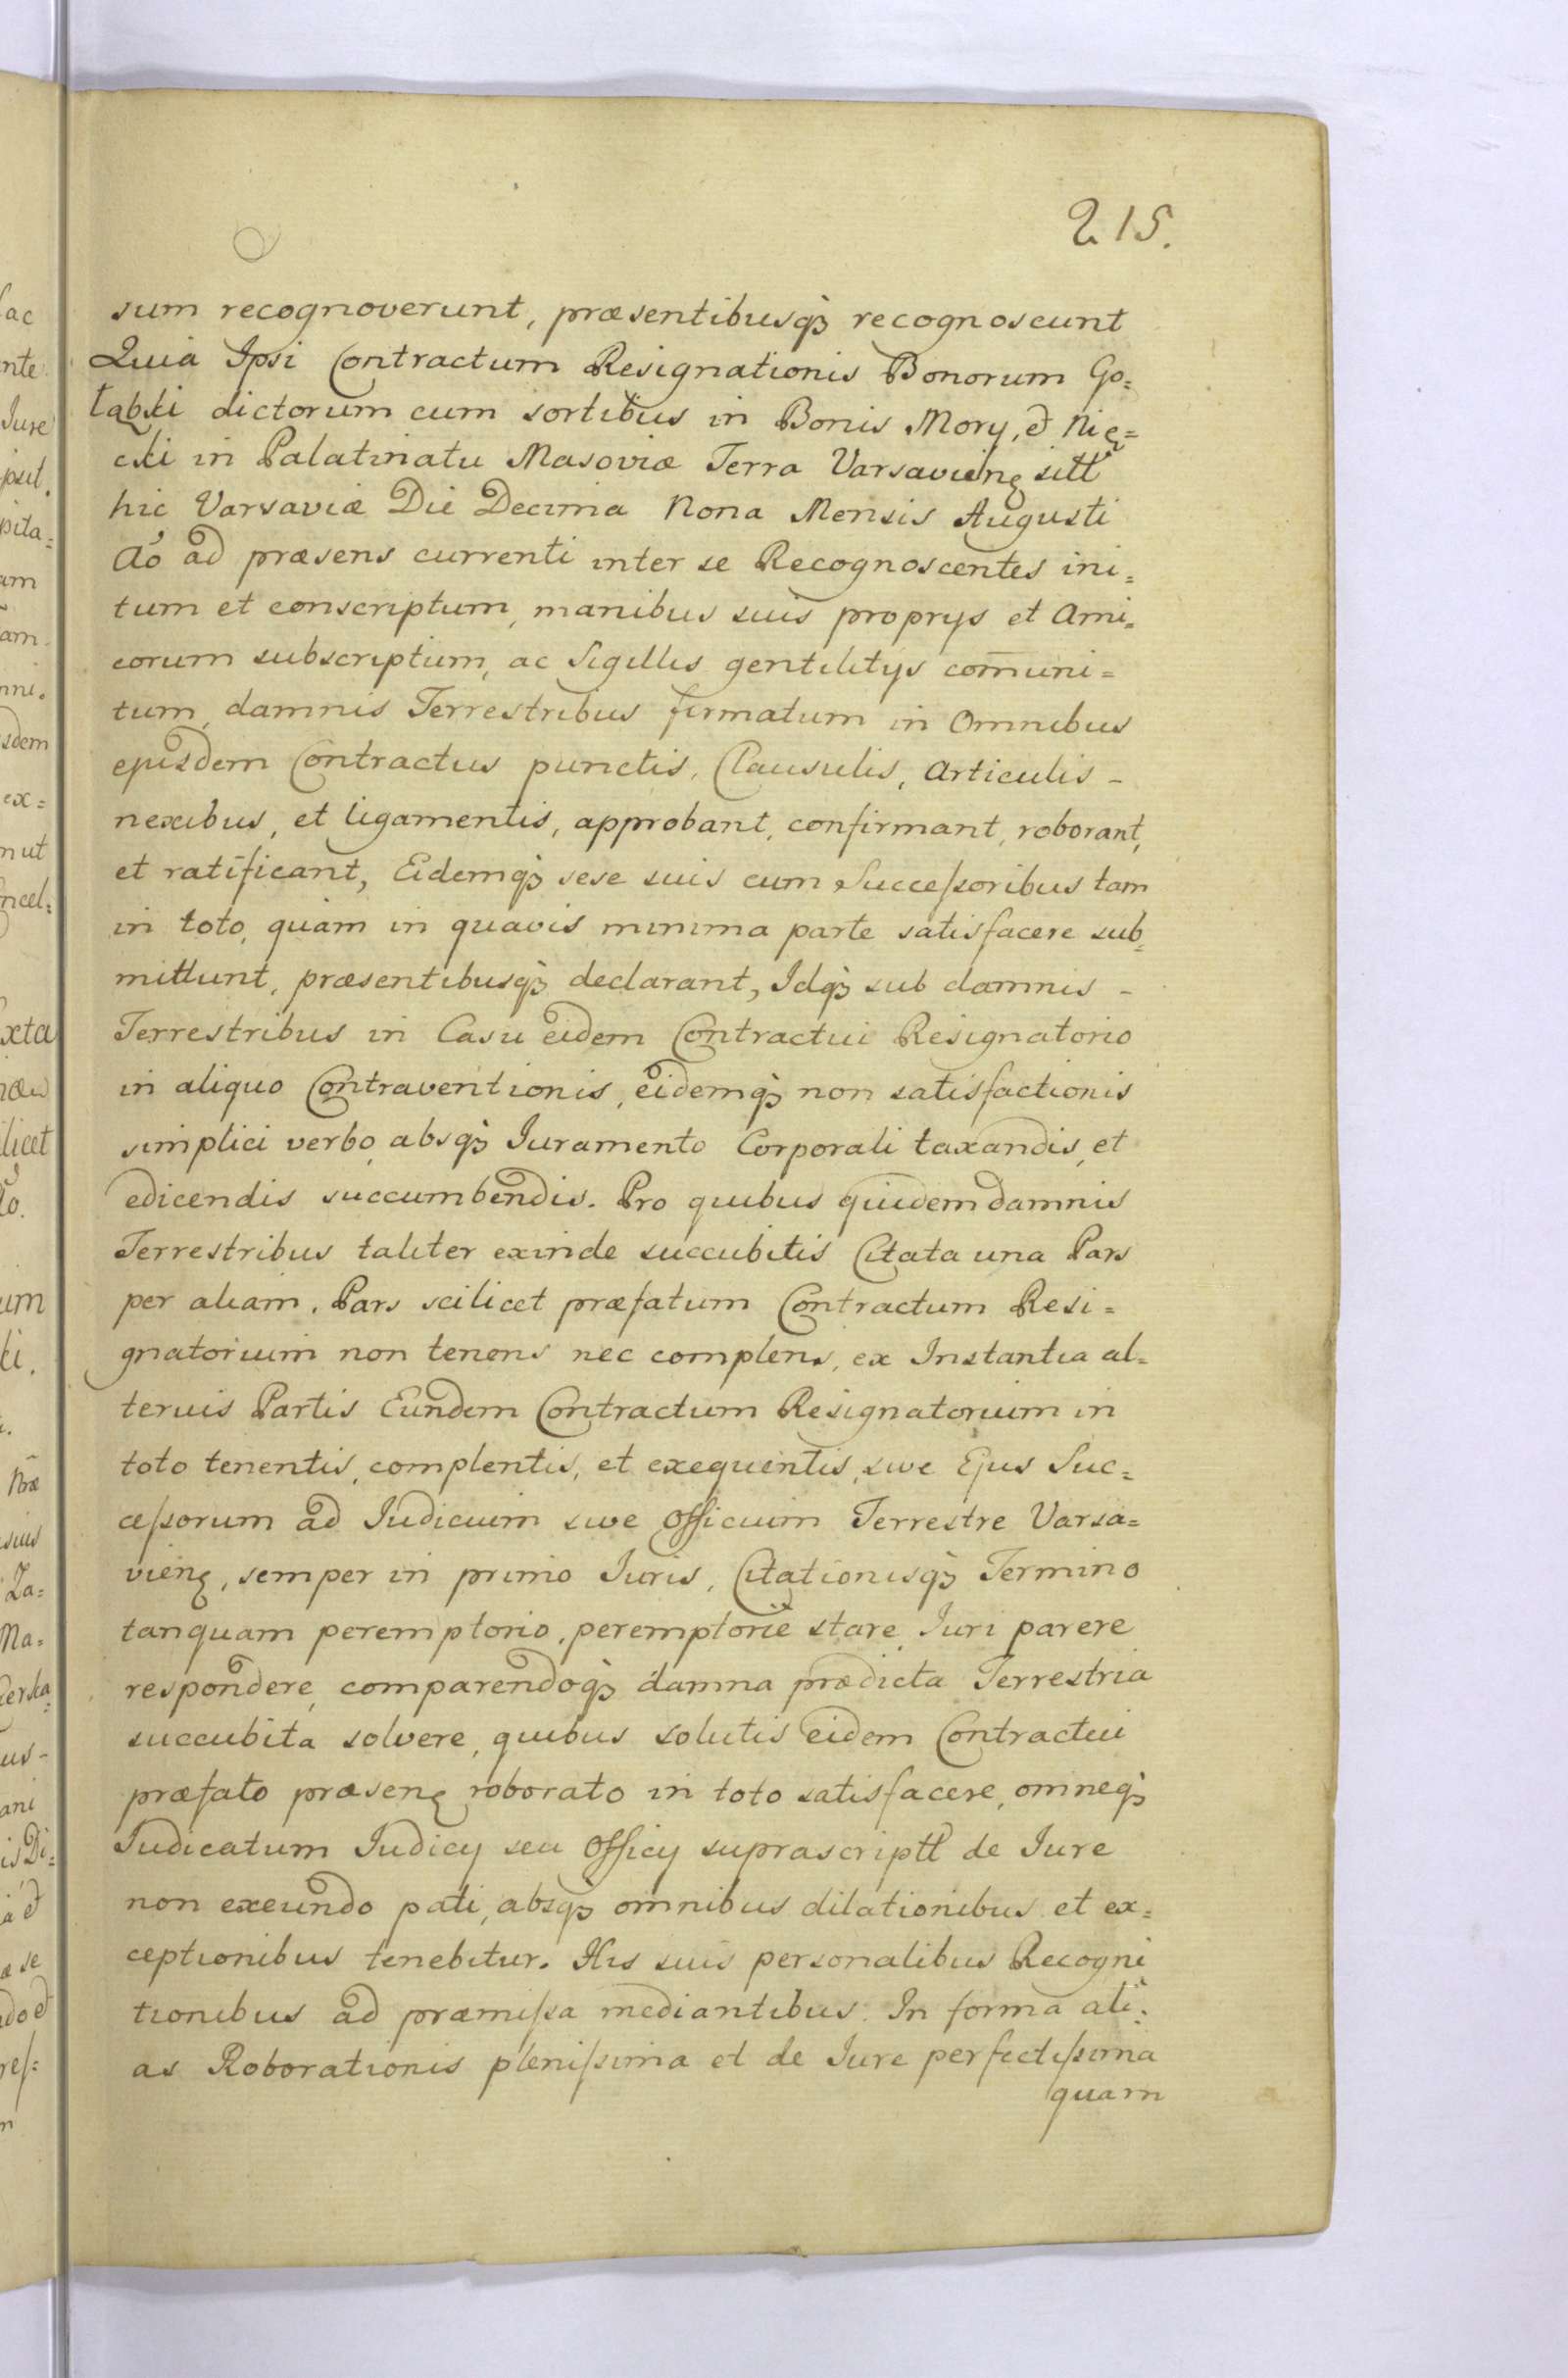 215.
sum recognoverunt, præsentibusq̃ recognoscunt
Quia Ipsi Contractum Resignationis Bonorum Go=
łąbki dictorum cum sortibus in Bonis Mory, et Nię=
cki in Palatinatu Masoviæ Terra Varsavieng sitt
hic Varsaviæ Die Decima Nona Mensis Augusti
Ao ad præsens currenti inter se Recognoscentes ini=
tum et conscriptum, manibus suis proprys et Ami=
corum subscriptum, ac Sigillis gentilitys com̄uni=
tum, damnis Terrestribus firmatum in Omnibus
ejusdem Contractus punctis, Clausulis, Articulis -
nexibus, et ligamentis, approbant, confirmant, roborant,
et ratificant, Eidemq̃ sese suis cum Succeſsoribus tam
in toto, quàm in quavis minima parte satisfacere sub=
mittunt, præsentibusq̃ declarant, Idq̃ sub damnis -
Terrestribus in Casu eidem Contractui Resignatorio
in aliquo Contraventionis, eidemq̃ non satisfactionis
simplici verbo absq̃ Iuramento Corporali taxandis, et
edicendis succumbendis. Pro quibus quidem damnis
Terrestribus taliter exinde succubitis Citata una Pars
per aliam, Pars scilicet præfatum Contractum Resi=
gnatorium non tenens nec complens, ex Instantia al=
terius Partis Eundem Contractum Resignatorium in
toto tenentis, complentis, et exequentis, sive Ejus Suc=
ceſsorum ad Iudicium sive Officium Terrestre Varsa=
vieng, semper in primo Iuris, Citationisq̃ Termino
tanquam peremptorio, peremptorie stare, Iuri parere
respondere, comparendoq̃ damna prædicta Terrestria
succubita solvere, quibus solutis eidem Contractui
præfato præseng roborato in toto satisfacere, omneq̃
Iudicatum Iudicy seu Officy suprascriptt de Iure
non exeundo pati, absq̃ omnibus dilationibus et ex=
ceptionibus tenebitur. His suis personalibus Recogni
tionibus ad præmiſsa mediantibus. In forma ali=
as Roborationis pleniſsima et de Iure perfectiſsima
quam